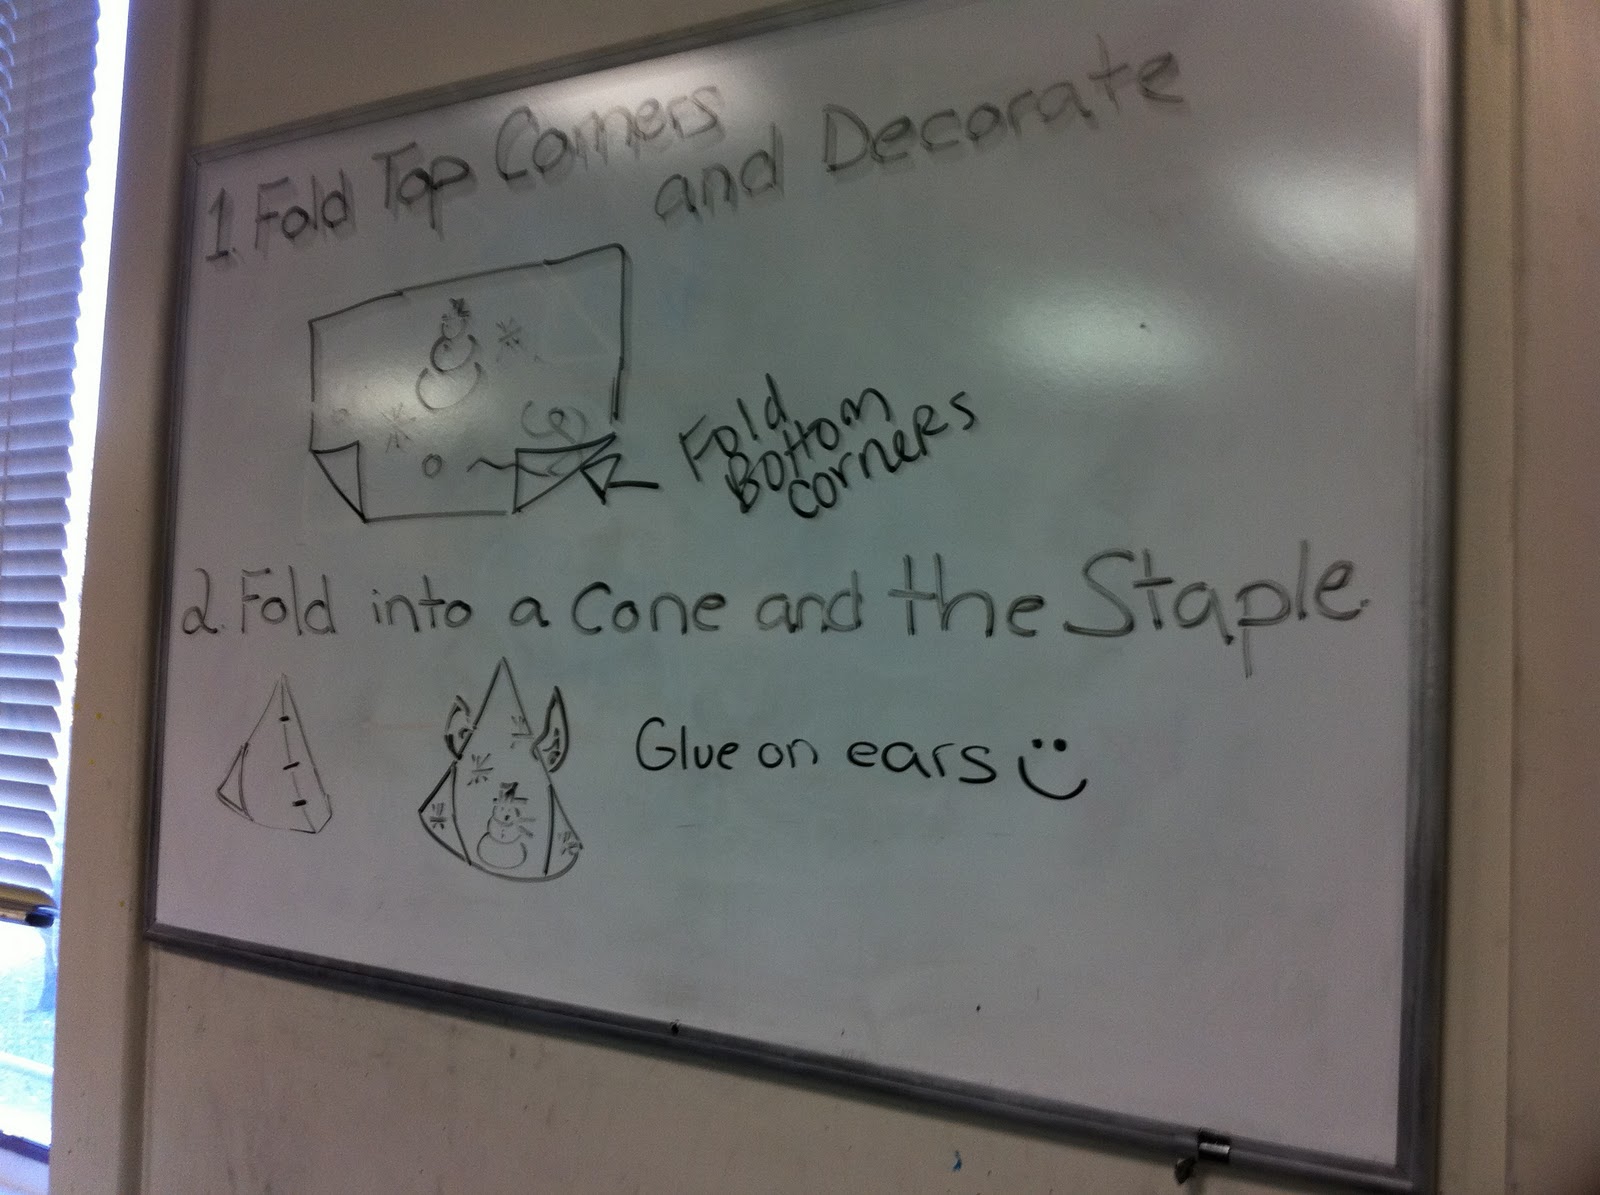 1. Fold Top Corners
and Decorate
Fold
Bottom
corners
2. Fold into a Cone and the Staple.
Glue on ears